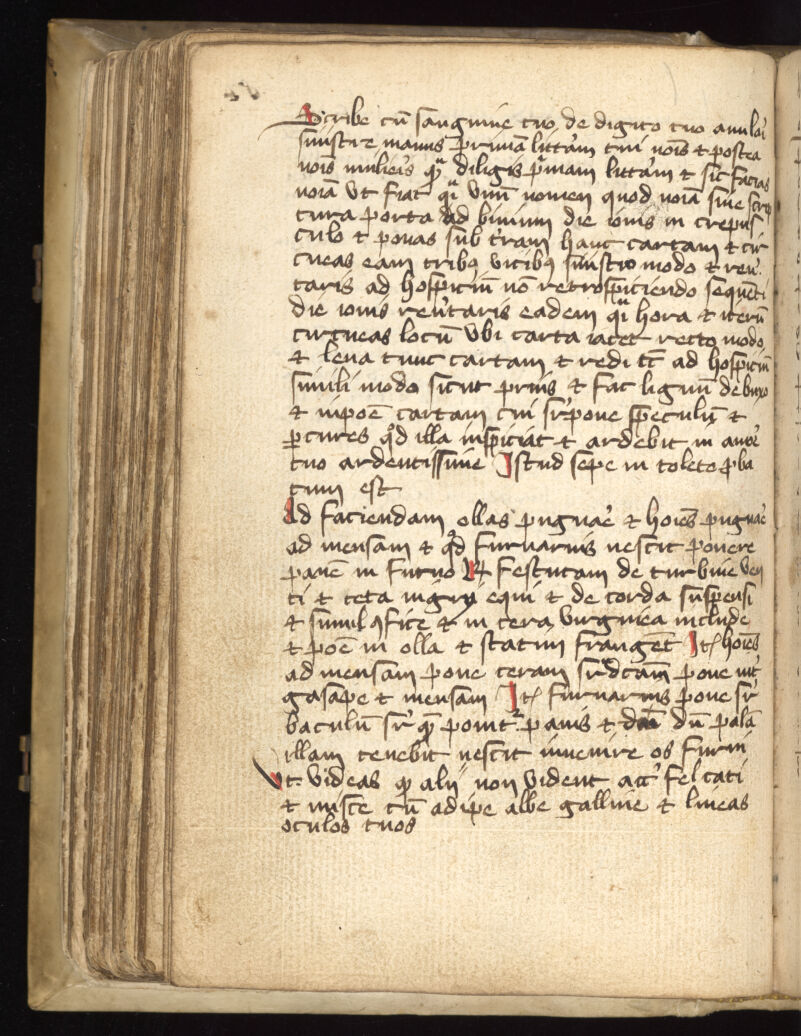 Scribe cū sanguine tuo de digito tuo anulari
sinistre manus primā littãm tui nõis et postea
nõis mulieris quã diligis p̃mam littãm et sic facias
noīa vt fiat quasi vnū nomen quod noīa sine scrip
tura porta ad biuium die iouis in crepus
culo et ponas sub t̃ram hanc cartam et cir
cueas eam tribꝯ vicibꝯ sinistro modo et reũ
taris ad hospiciū nō retrospiciendo sequēti
die iouis reũtaris eadem hora et iterū
circueas locū vbi carta iacet recto modo
et leua tunc cartam et redi ad hospiciū
simili modo sicut prius et fac lignū de buxo
et inpoē cartam cui sr̃pone speculū et
ꝑcures qd̃ illa inspiciat et ardebit in amore
tuo ardentissime Istud sepe in toleto ꝓba
tum est
Ad faciendam ollas pugnar̃ et hoiēs pugnar̃
ad mensam et qd̃ furnarius nescit ponere
panē in furno festucam de turbine ven
ti et ceta nigri equi et de corda suspensi
et simul ꝯfice et in cera virginea include
et poē in olla et statim frangent̃ Itē hoiēs
ad mensam pone ceram sr̃dc̃am pone int̃
gasape et mensam Itē furnarius pone sr̃
baculū sr̃ panis et dū palã
illam tenebit nescit inuenire os furni
vt videas qd̃ alij non vident acc̃ fel cati
et misce cū adipe albe galline et lineas
oculos tuos